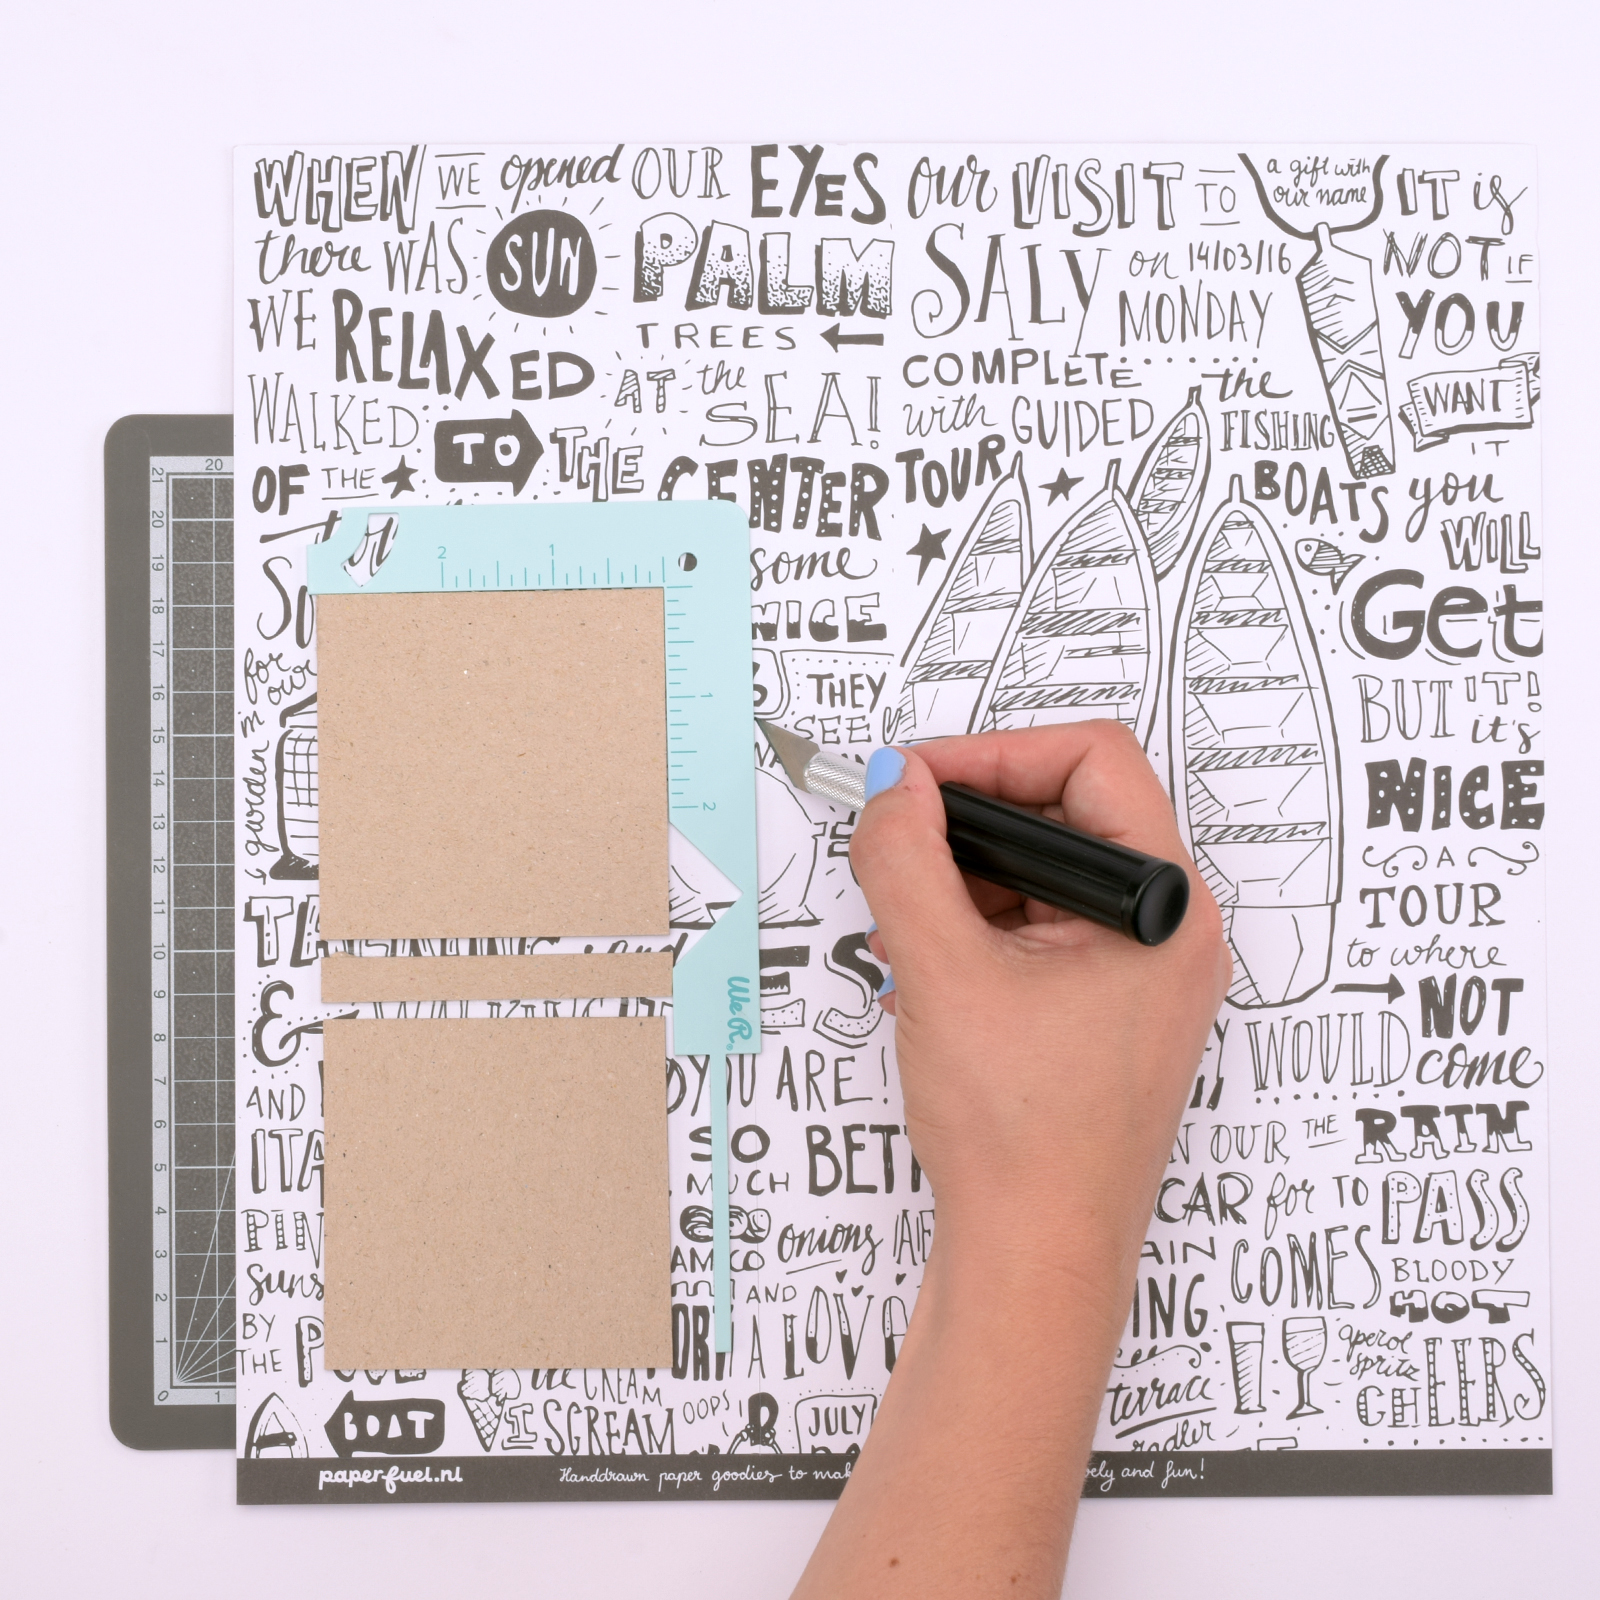 WHEN WE opened OUR EYES
there WAS SUN PALM
TREES
WE RELAXED AT the SEA!
WALKED TO THE CENTER
OF THE
for
some
NICE
for our
garden
in
THEY
SEE
and
&
AND
YOU ARE!
SO
MUCH
onions
AND
suns
BY
THE
A LOVE
BOAT
ICE CREAM
I SCREAM
OOPS!
JULY
our VISIT TO
SALY on 14/03/16
MONDAY
COMPLETE
with GUIDED
TOUR
the
FISHING
BOATS
a gift with
our name
IT is
NOT IF
YOU
WANT
IT
you
WILL
Get
BUT IT!
it's
NICE
A
TOUR
to where
NOT
WOULD come
IN OUR THE RAIN
CAR for TO PASS
COMES
BLOODY
HOT
aperol
spritz
CHEERS
terrace
radler
2 1
1
2
We R.
20
21
20
19
18
17
16
15
14
13
12
11
10
9
8
7
6
5
4
3
2
1
0 1
paperfuel.nl Handdrawn paper goodies to mak vely and fun!